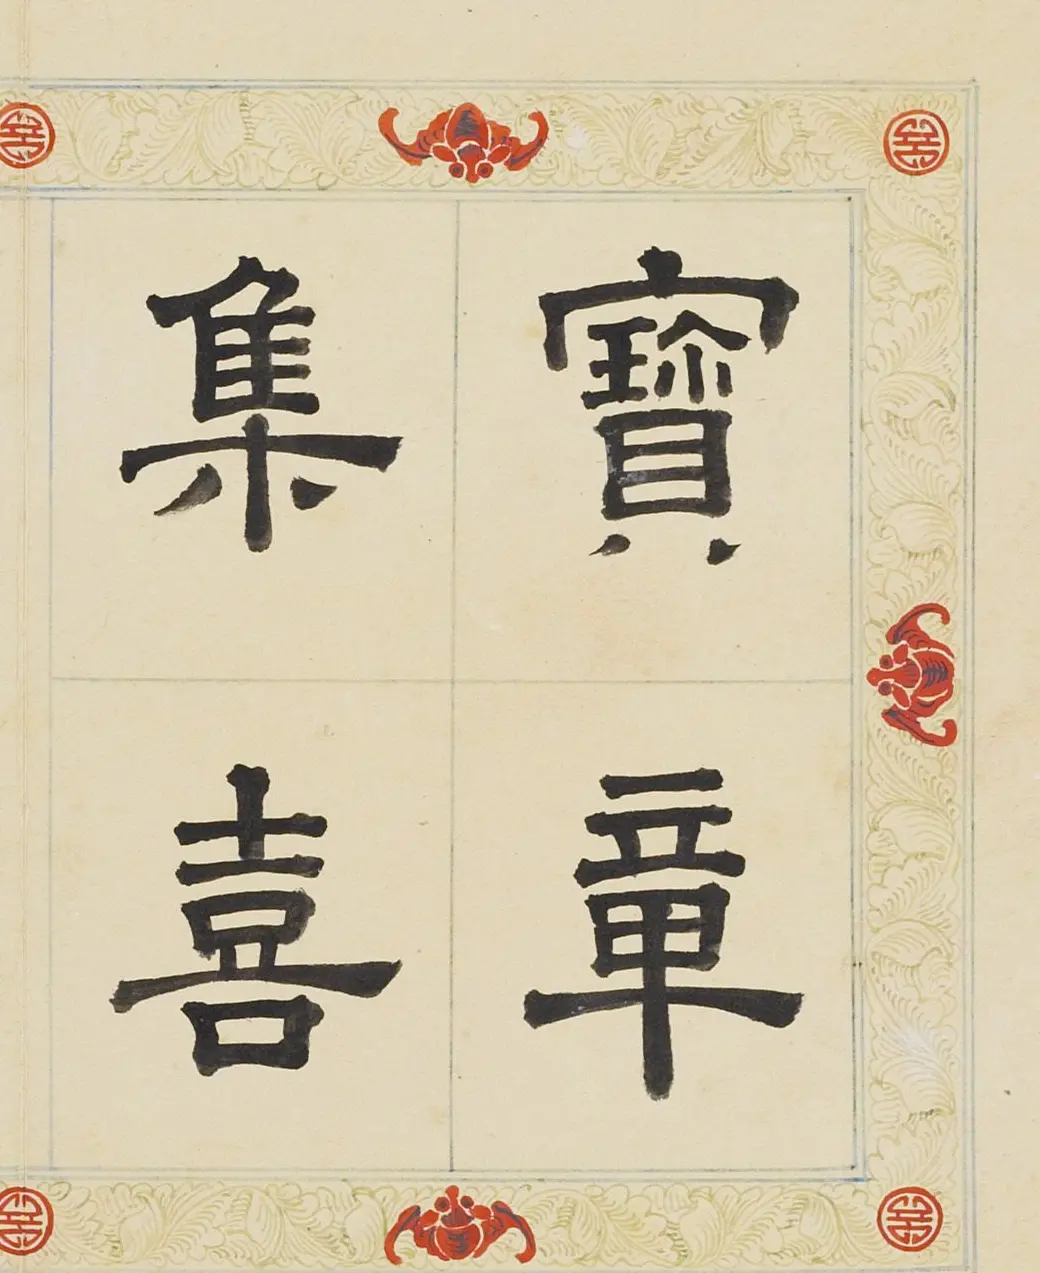 寶章
集喜